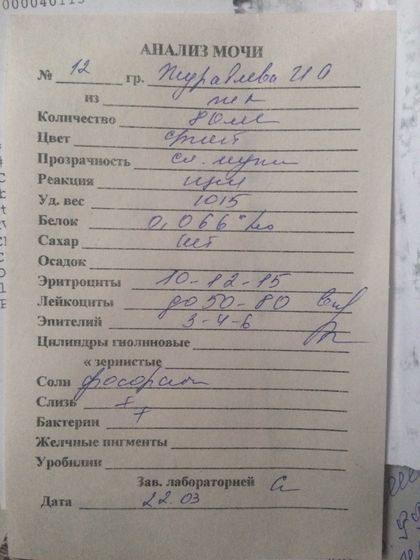 000040113
АНАЛИЗ МОЧИ
№ 12 гр. Журавлева И О
из жк
Количество 80 мл
Цвет с/жёлт
Прозрачность сл. мутн
Реакция щел
Уд. вес 1015
Белок 0,066 ‰
Сахар нет
Осадок
Эритроциты 10-12-15
Лейкоциты до 50-80
Эпителий 3-4-6
Цилиндры гиолиновые
« зернистые
Соли фосфаты
Слизь +
Бактерии +
Желчные пигменты
Уробилин
Зав. лабораторией
Дата 22.03